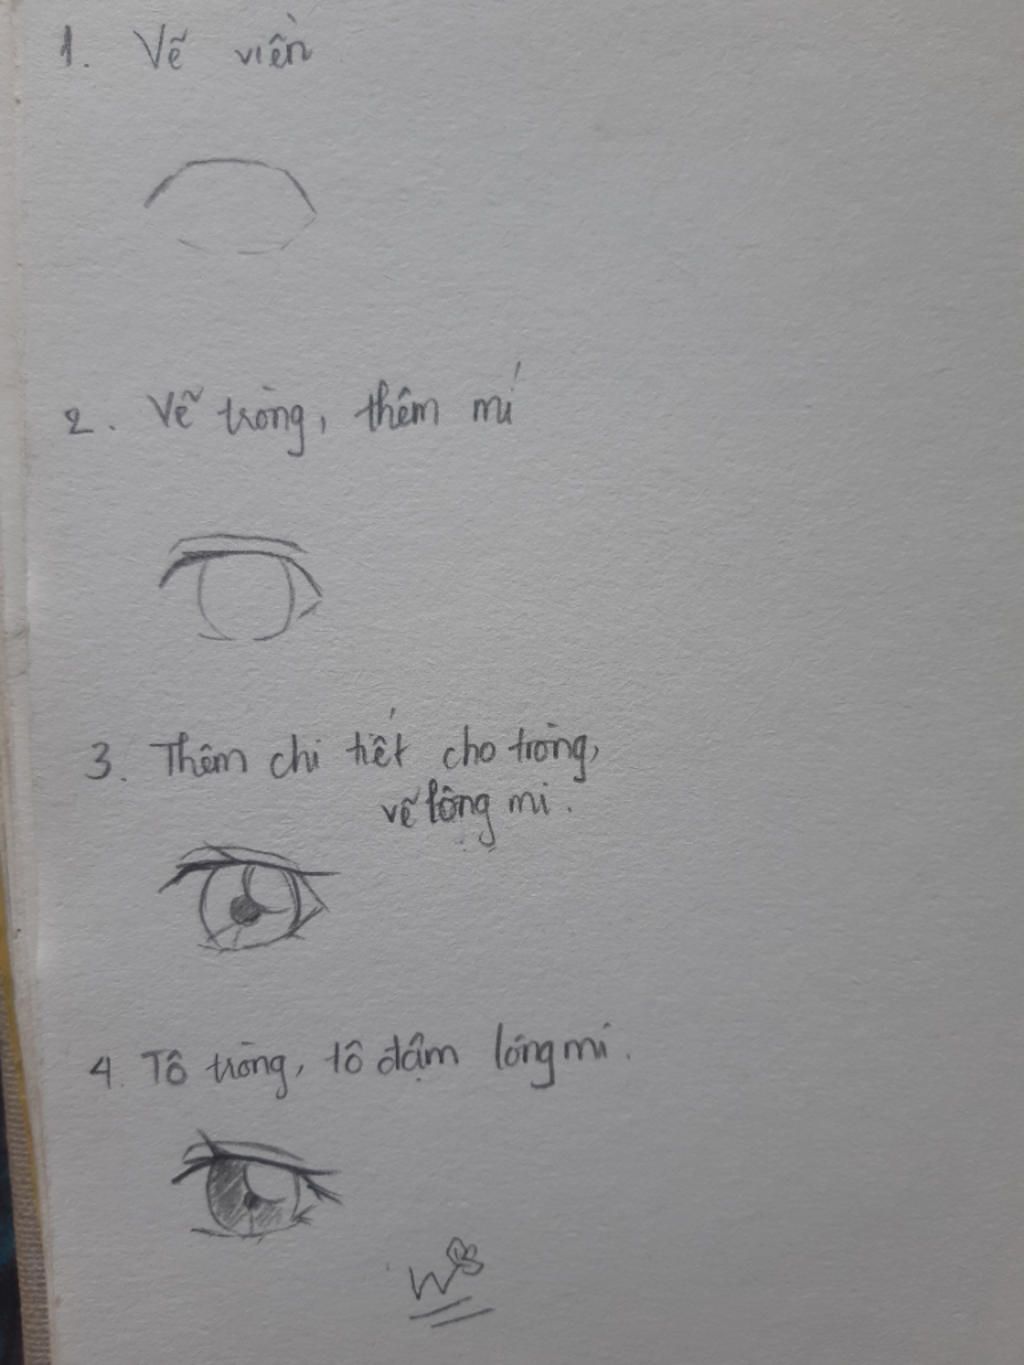 1. Vẽ viền
2. Vẽ tròng, thêm mí
3. Thêm chi tiết cho tròng,
vẽ lông mi.
4. Tô tròng, tô đậm lông mi.